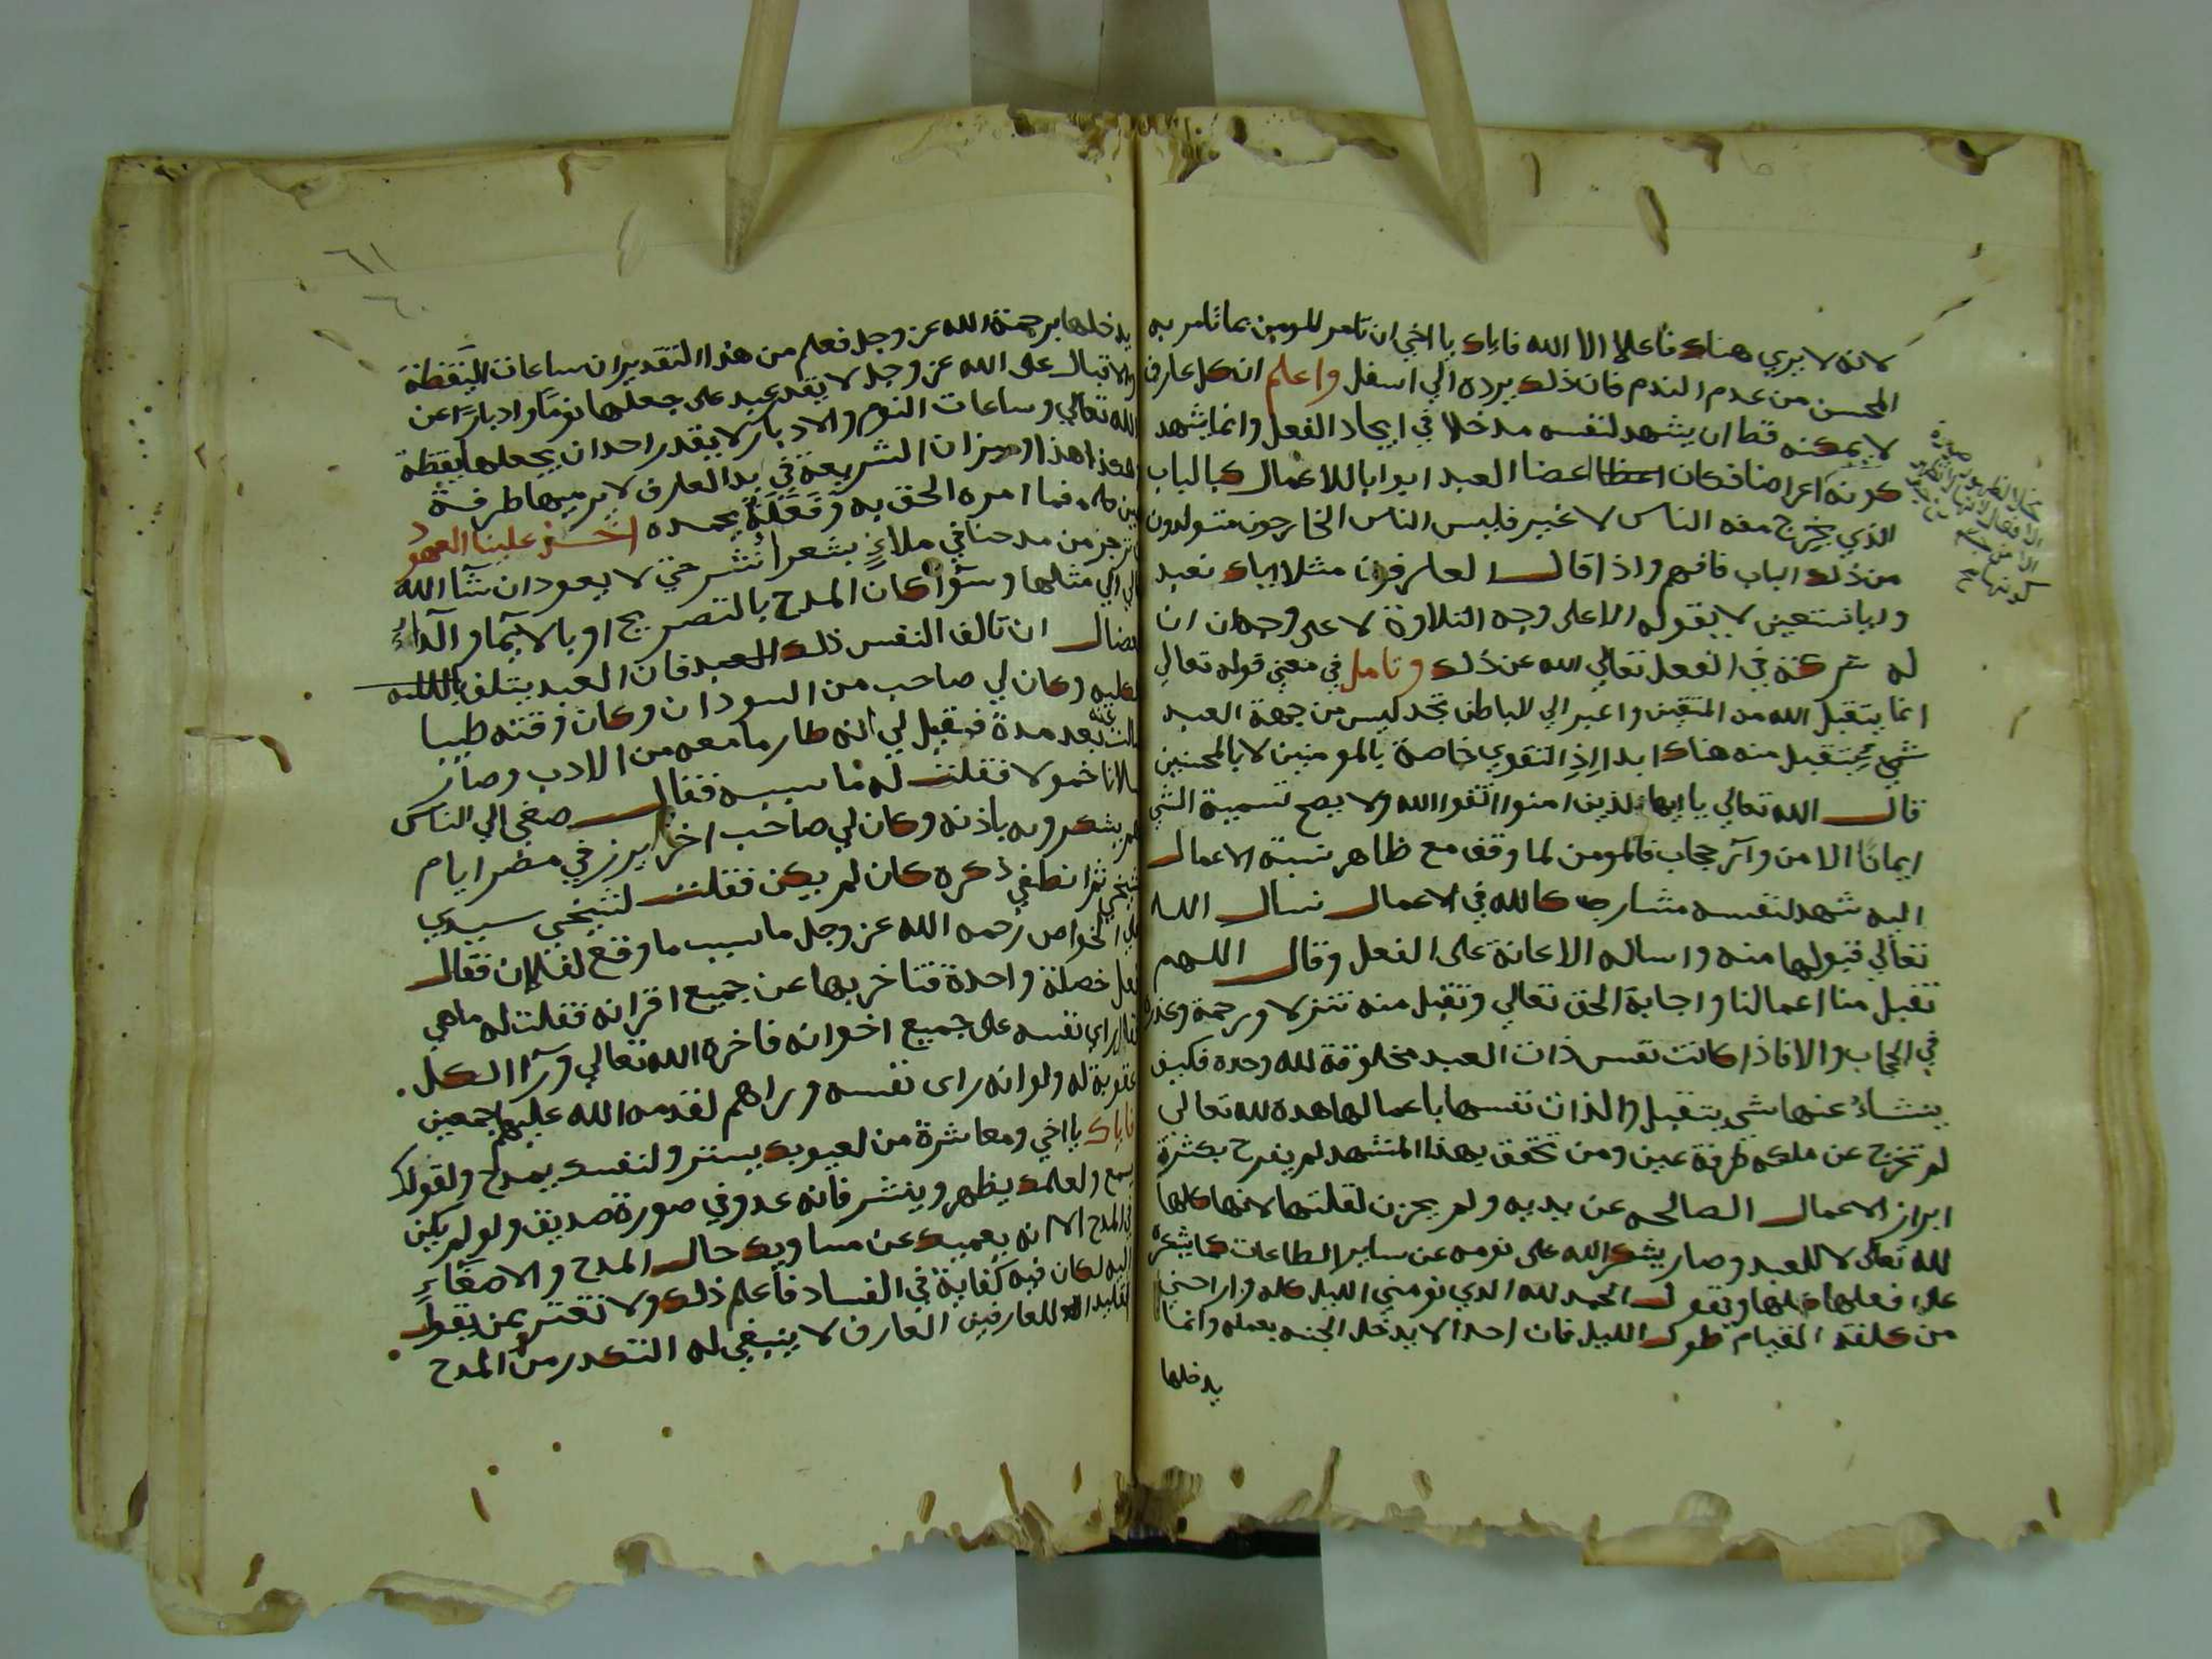 لانه لا يري هناك فاعلا الا الله فاياك يا اخي ان تامر المومن بما تامر به
المحسن من عدم الندم فان ذلك يرده الي اسفل واعلم ان كل عارف
لا يمكنه قط ان يشهد لنفسه مدخلا في ايجاد الفعل وانما يشهد
كونه اعراضا فكان اعضا العبد ابوابا للاعمال كالباب
الذي يخرج منه الناس لا غير فليس الناس الخارجون متولدون
من ذلك الباب فافهم واذا قال العارفون مثلا اياك نعبد
واياك نستعين لا يقوله الا على وجه التلاوة لا على وجه ان
له شركة في الفعل تعالي الله عن ذلك وتامل في معني قوله تعالي
انما يتقبل الله من المتقين واعبر الي الباطن تجد ليس من جهة العبد
شيء يتقبل منه هناك ابدا اذ التقوي خاصة بالمومنين لا بالمحسنين
قال الله تعالي يا ايها الذين امنوا اتقوا الله ولا يصح تسمية الشي
ايمانا الا من ورآء حجاب فالمومن لما وقف مع ظاهر نسبة الاعمال
اليه شهد لنفسه مشاركا لله في الاعمال نسال الله
تعالي قبولها منه وساله الاعانة على الفعل وقال اللهم
تقبل منا اعمالنا واجابة الحق تعالي وتقبل منه تنزلا ورحمة وعذره
في الحجاب والا فاذا كانت نفس ذات العبد مخلوقة لله وحده فكيف
ينشاء عنها شي يتقبل والذات نفسها باعمالها هدة لله تعالي
لم تخرج عن ملكه طرفة عين ومن تحقق بهذا المشهد لم يفرح بكثرة
ابراز الاعمال الصالحه عن يديه ولم يحزن لقلتها لانها كلها
لله تعالى لا للعبد وصار يشكر الله على نومه عن ساير الطاعات كما يشكره
على فعلها كلها ويقول الحمد لله الذي نومني الليل كله واراحني
من كلفة القيام طول الليل فان احدا لا يدخل الجنه بعمله وانما
يدخلها
٦١
٦٠
يدخلها برحمة الله عز وجل فعلم من هذا التقدير ان ساعات اليقظة
والاقبال على الله عز وجل لا يقدر عبد على جعلها نوما وادبارا عن
الله تعالي وساعات النوم والادبار لا يقدر احد ان يجعلها يقظة
هذا وميزان الشريعة في يد العارف لا يرميها طرفة
عين كله فما امره الحق به وفعله يحمده اخذ علينا العهود
ان نزجر من مدحنا في ملاء بشعر او نثر حتي لا يعود ان شآ الله
تعالي الي مثلها وسوآ كان المدح بالتصريح او بالايمآ
ان تالف النفس ذلك فان العبد يتلف بالكلية
وكان لي صاحب من السودان وكان وقته طيبا
بعد مدة فقيل لي انه طار ما معه من الادب وصار
خمولا فقلت له ما سببه فقال صغي الي الناس
يشكروه باذنه وكان لي صاحب اخر برز في مصر ايام
شيخي ثم انطفي ذكره كان لم يكن فقلت لشيخي سيدي
علي الخواص رحمه الله عز وجل ما سبب ما وقع لفلان فقال
فعل خصلة واحدة فتاخر بها عن جميع اقرانه فقلت له ما هي
فقال راي نفسه على جميع اخوانه فاخره الله تعالي ورآ الكل
عقوبة له ولو انه راى نفسه وراهم لقدمه الله عليهم اجمعين
فاياك يا اخي ومعاشرة من لعيوبك يستر ولنفسك يمدح ولقولك
يسمع ولعلمك يظهر وينشر فانه عدو في صورة صديق ولو لم يكن
في المدح الا انه يعميك عن مساويك حال المدح والاصغاء
اليه لكان فيه كفاية في الفساد فاعلم ذلك ولا تغتر بمن يقول
للعارفين العارف لا ينبغي له التكدر من المدح